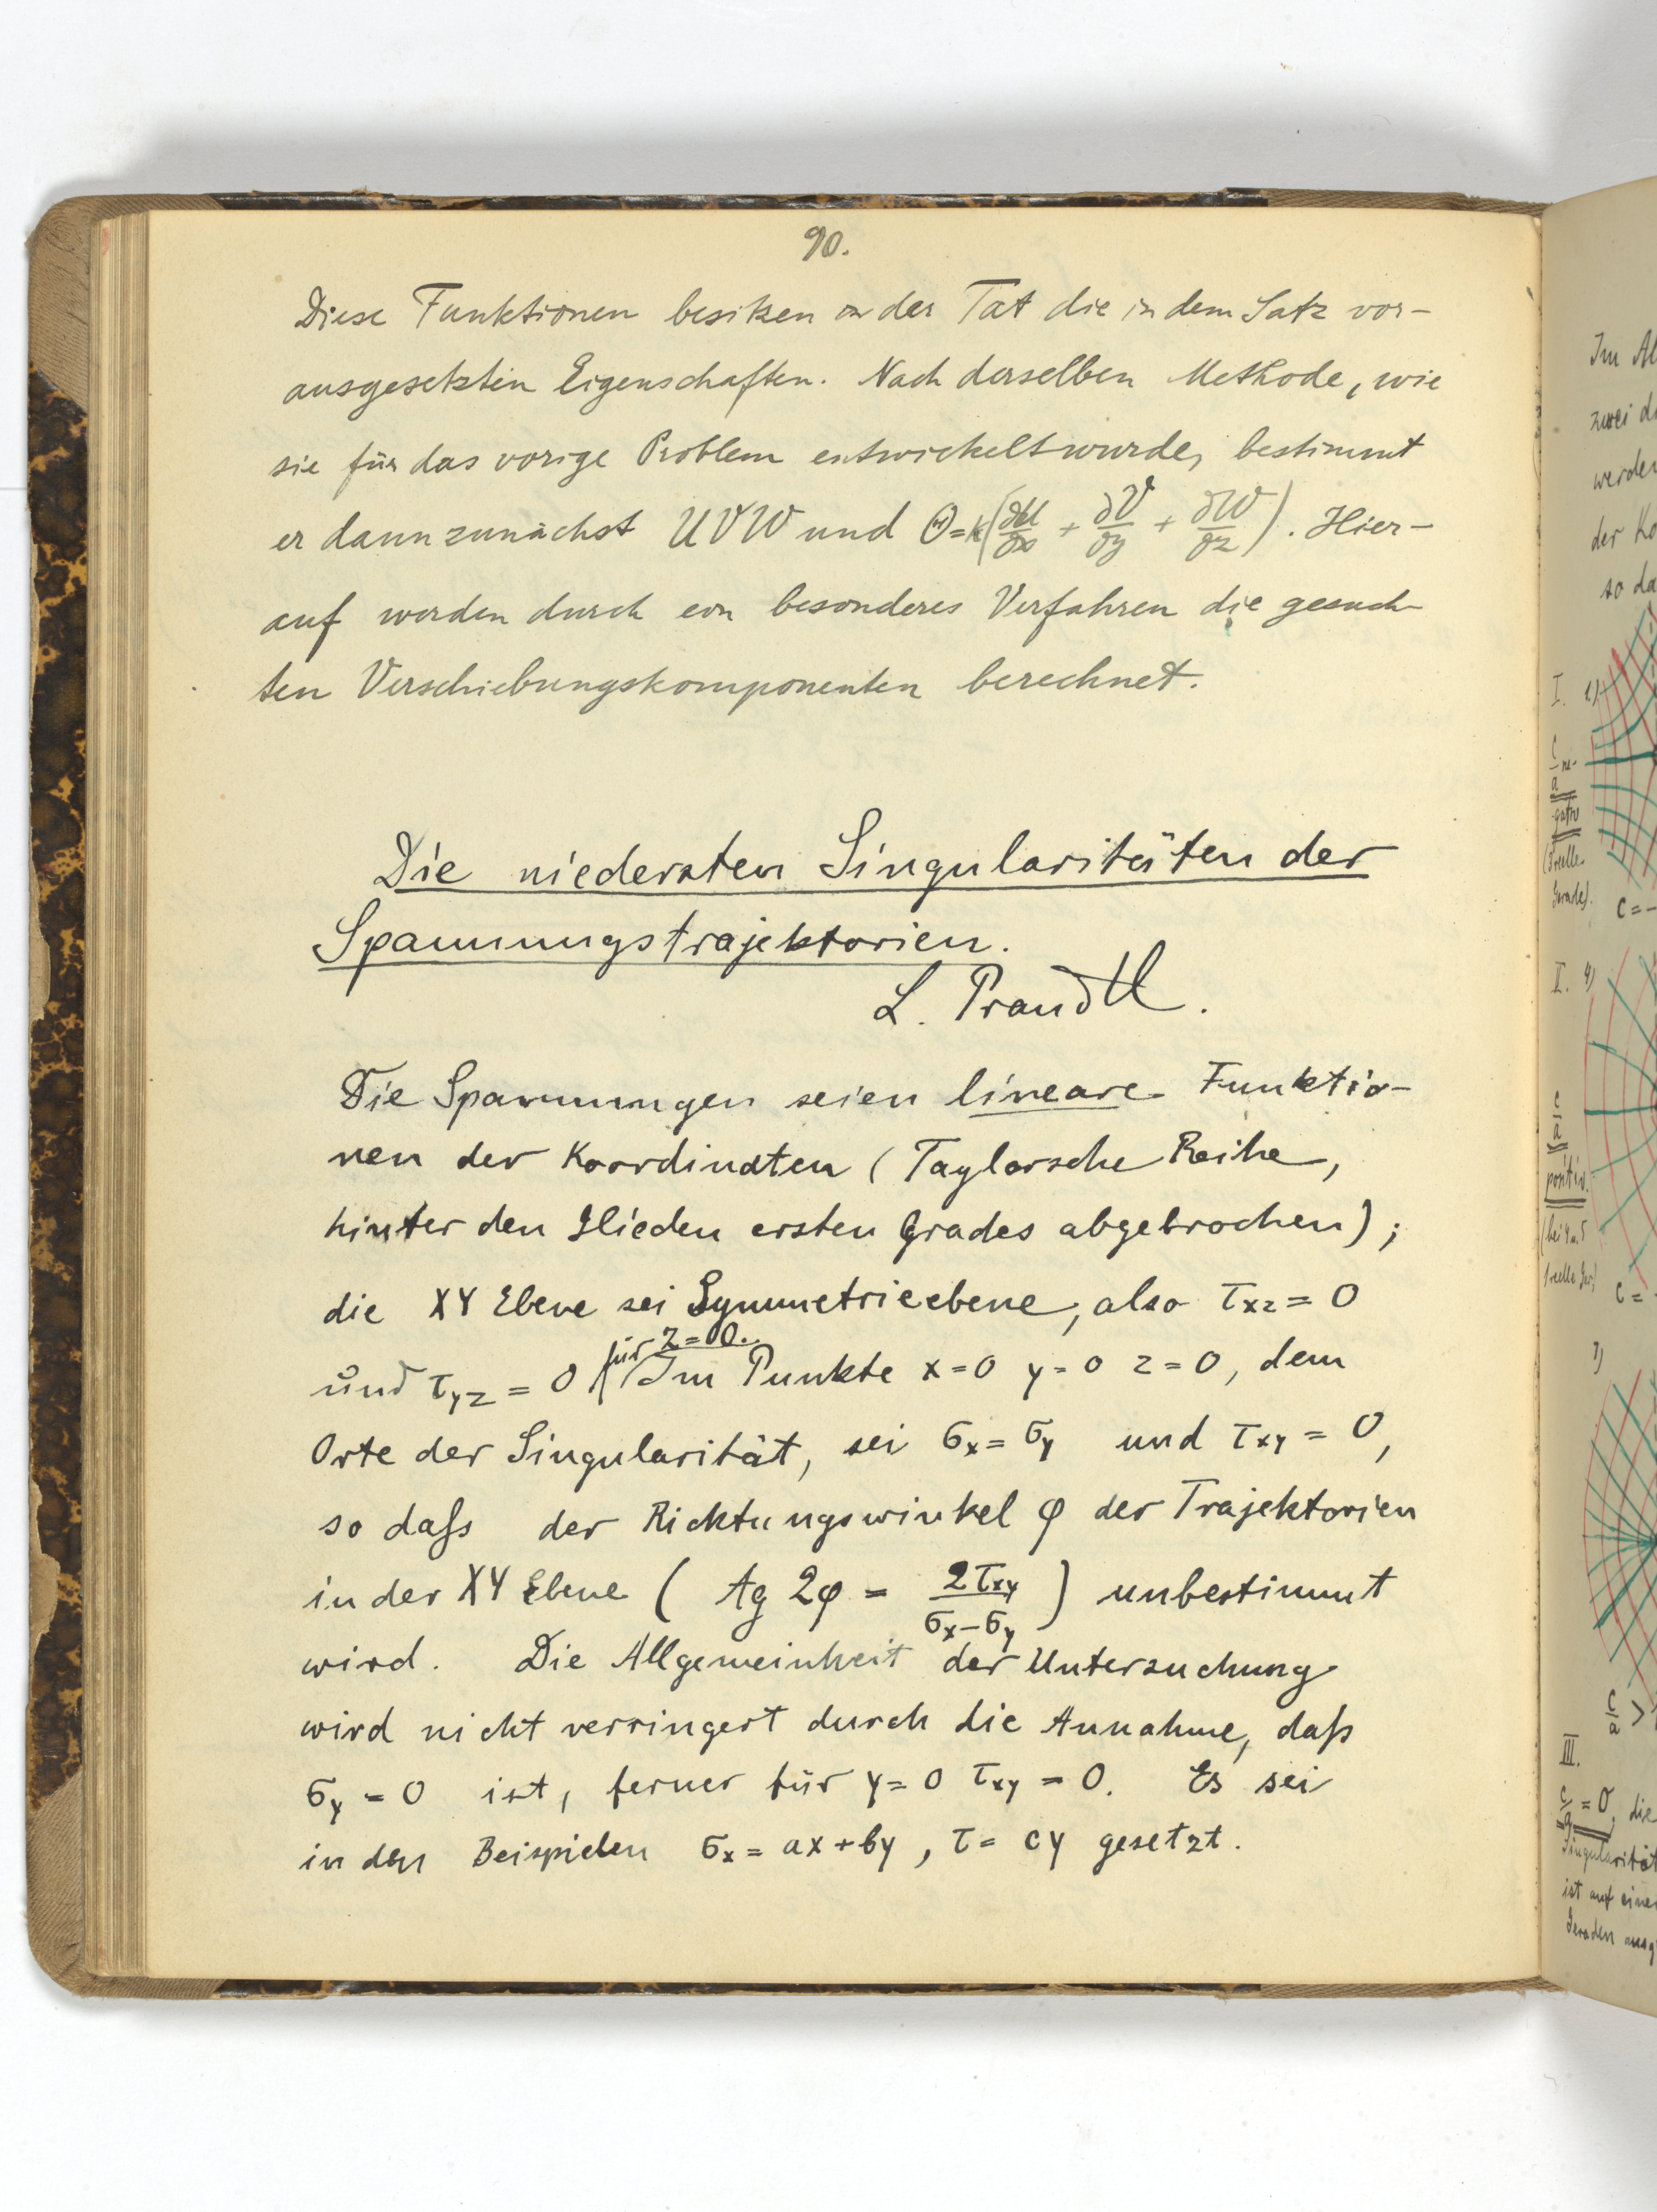 90.
Diese Funktionen besitzen in der Tat die in dem Satz vor-
ausgesetzten Eigenschaften. Nach derselben Methode, wie
sie für das vorige Problem entwickelt wurde, bestimmt
er dann zunächst U V W und Θ = k(∂U/∂x + ∂V/∂y + ∂W/∂z). Hier-
auf werden durch ein besonderes Verfahren die gesuch-
ten Verschiebungskomponenten berechnet.
Die niedersten Singularitäten der
Spannungstrajektorien.
L. Prandtl.
Die Spannungen seien lineare Funktio-
nen der Koordinaten (Taylorsche Reihe,
hinter den Glieden ersten Grades abgebrochen);
die XY Ebene sei Symmetrieebene, also τxz = 0
und τyz = 0 für z = 0. Im Punkte x = 0 y = 0 z = 0, dem
Orte der Singularität, sei σx = σy und τxy = 0,
so daſs der Richtungswinkel φ der Trajektorien
in der XY Ebene ( tg 2φ = 2τxy / σx − σy ) unbestimmt
wird. Die Allgemeinheit der Untersuchung
wird nicht verringert durch die Annahme, daſs
σy = 0 ist, ferner für y = 0 τxy = 0. Es sei
in den Beispielen σx = ax + by , τ = cy gesetzt.
Im
zwei
werden
der
so
I. 1)
c/a ne-
gativ
Gerade).
c = −
II. 4)
c/a
positiv.
c =
7)
c/a >
III.
c/a = 0, die
Singularität
ist auf einer
Geraden